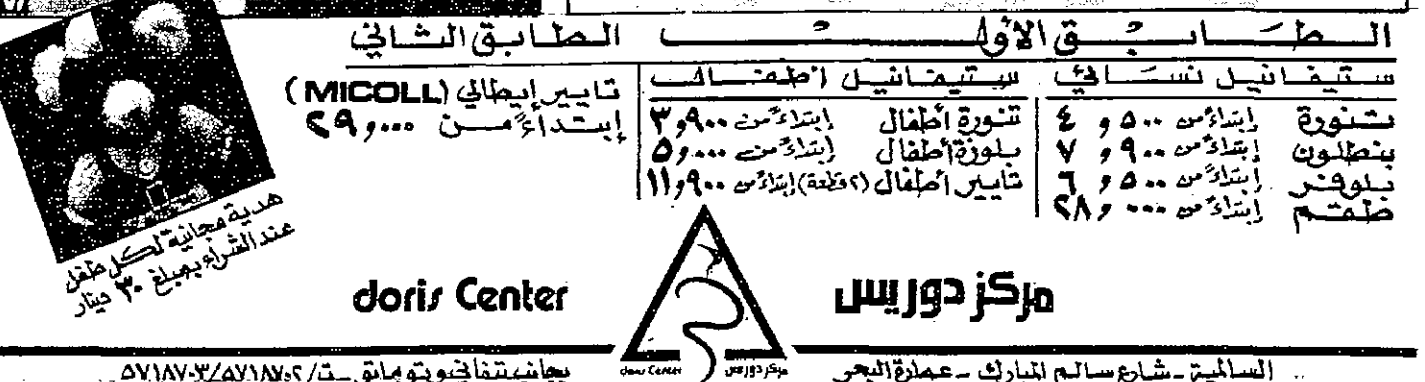 الطابق الأول
ستيفانيل نسائي
تنورة إبتداءً من ٤,٥٠٠
بنطلون إبتداءً من ٧,٩٠٠
بلوفر إبتداءً من ٦,٥٠٠
طقم إبتداءً من ٢٨,٠٠٠
ستيفانيل أطفال
تنورة أطفال إبتداءً من ٣,٩٠٠
بلوزة أطفال إبتداءً من ٥,٠٠٠
تايير أطفال (٢ قطعة) إبتداءً من ١١,٩٠٠
الطابق الثاني
تايير إيطالي (MICOLL)
إبتداءً من ٢٩,٠٠٠
هدية مجانية لكل طفل
عند الشراء بمبلغ ٣٠ دينار
مركز دوريس
doris Center
doris Center
مركز دوريس
السالمية - شارع سالم المبارك - عمارة البحر
بجانب تيفاني وتومانو - ت/ ٥٧١٨٧٠٢/٥٧١٨٧٠٣